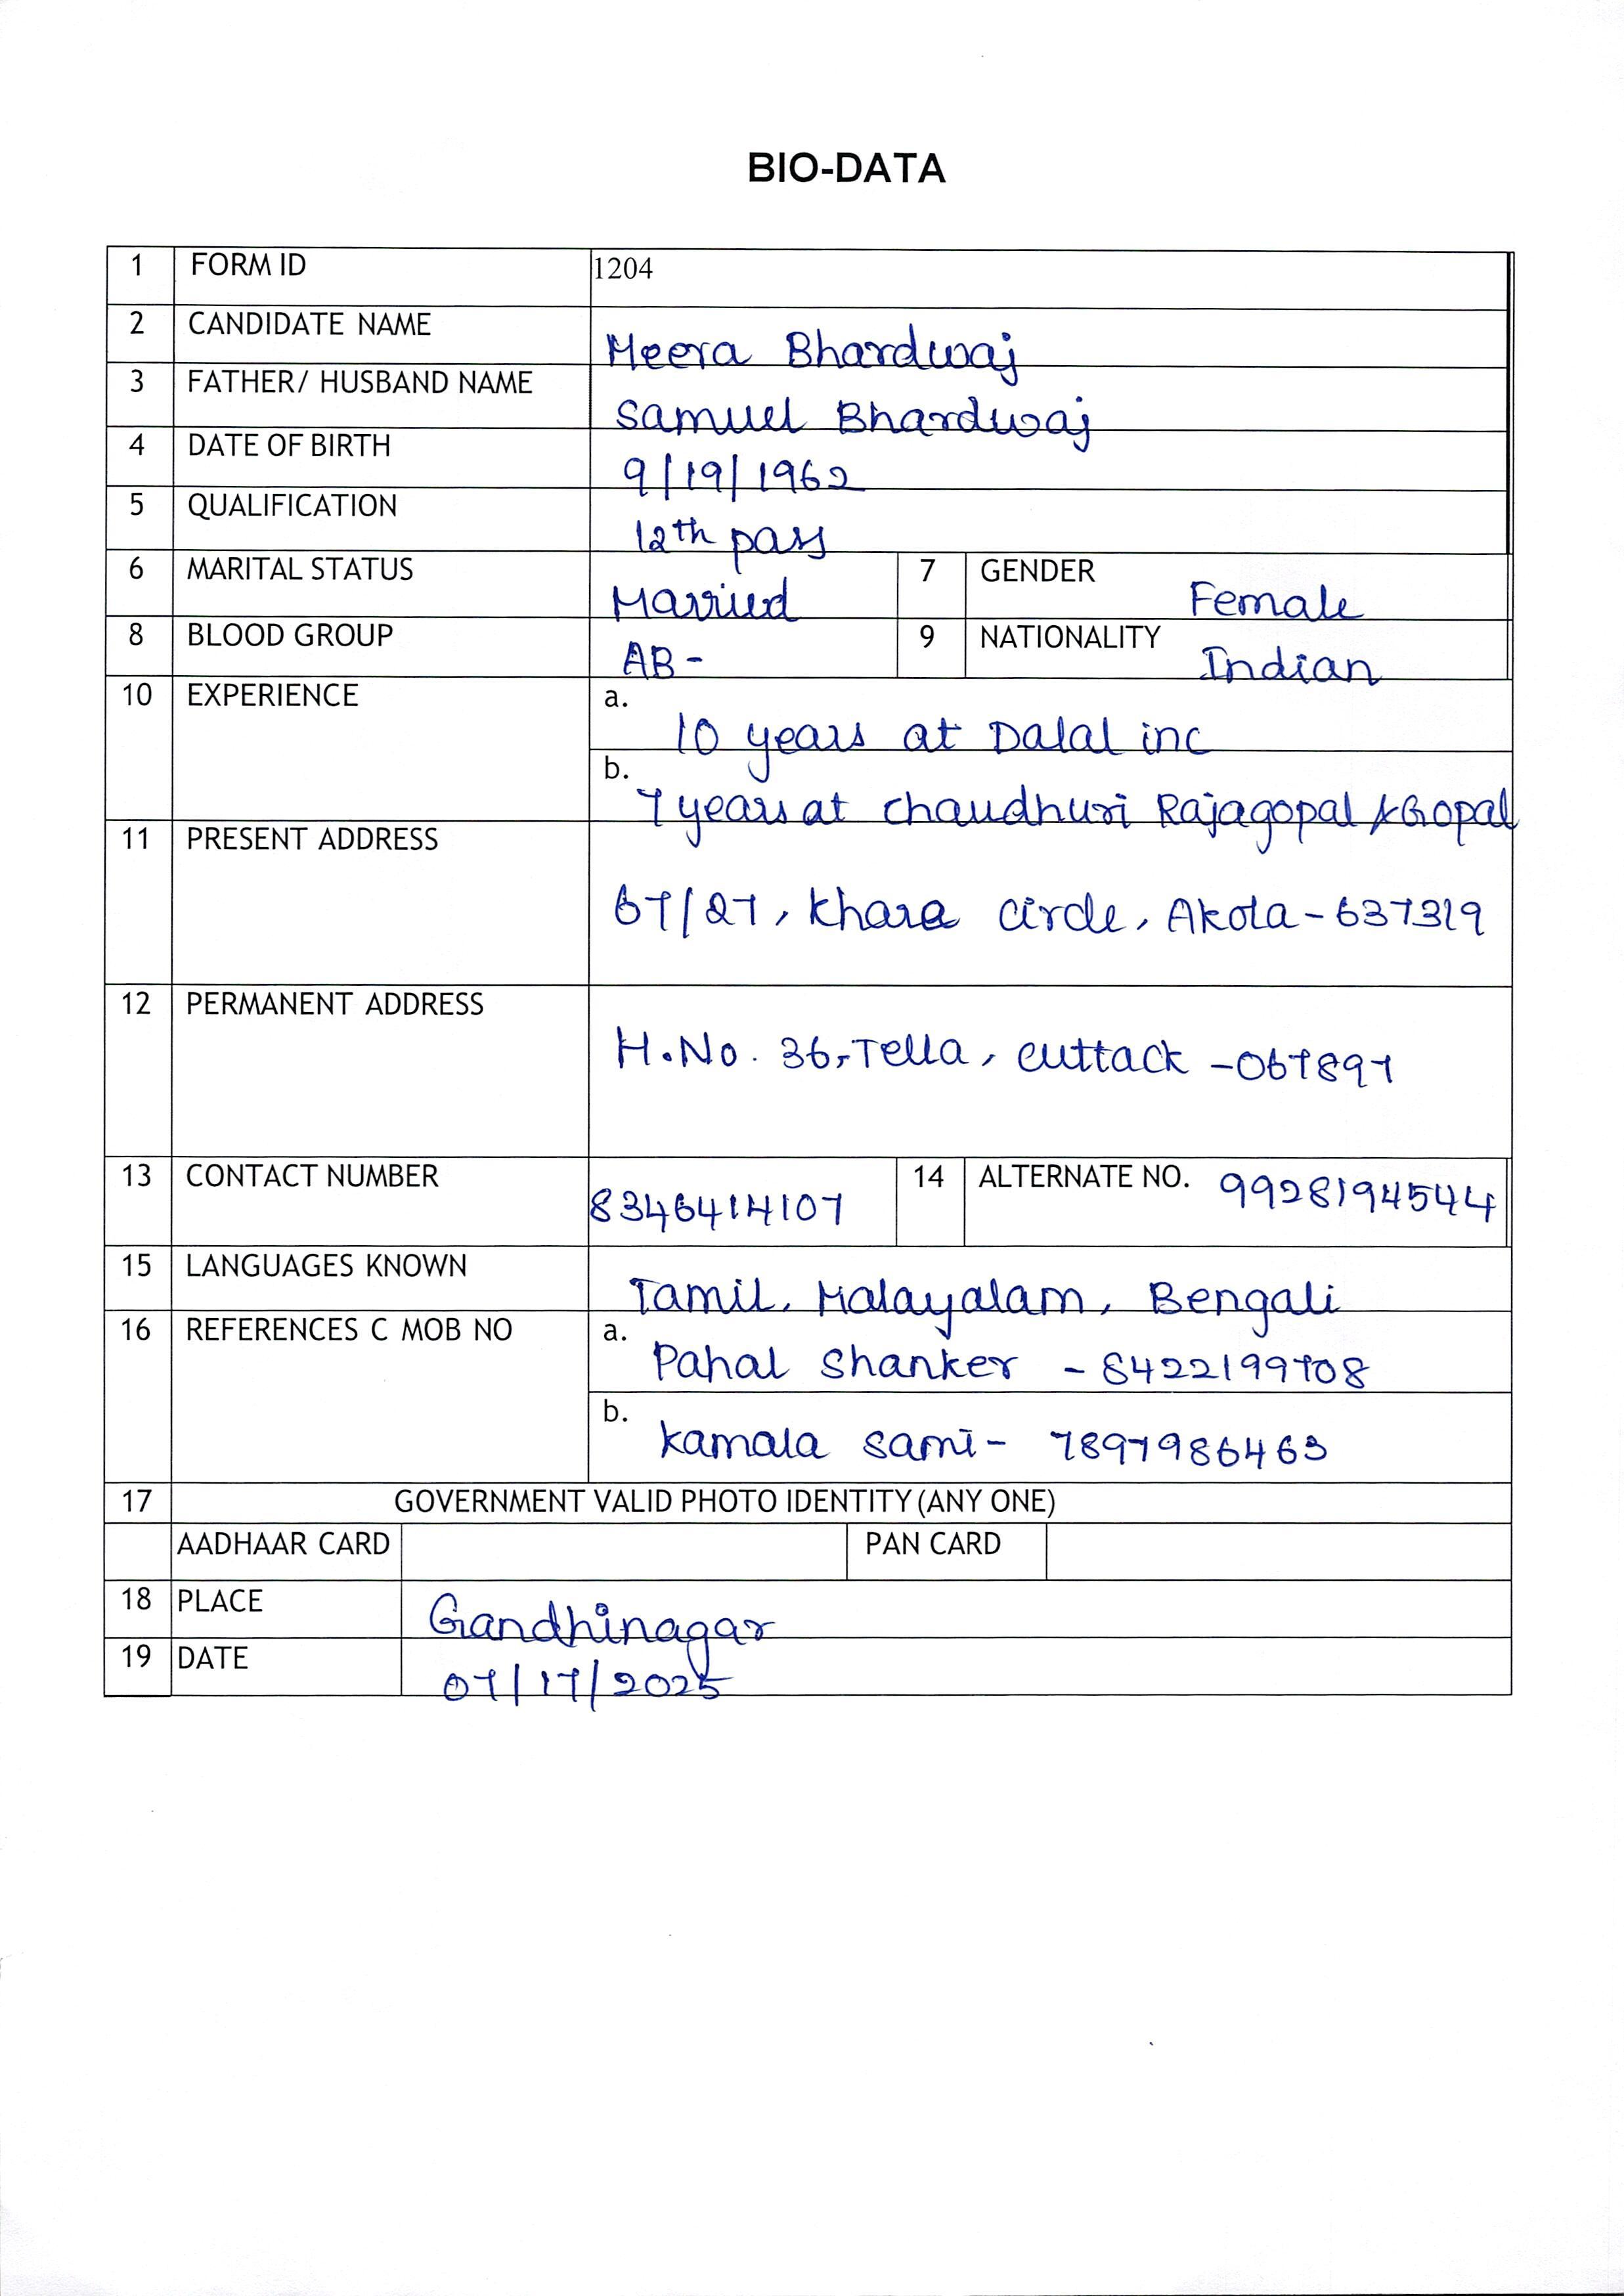 BIO-DATA
1 FORM ID 1204
2 CANDIDATE NAME Meera Bhardwaj
3 FATHER/ HUSBAND NAME Samuel Bhardwaj
4 DATE OF BIRTH 9/19/1962
5 QUALIFICATION 12th pass
6 MARITAL STATUS Married 7 GENDER Female
8 BLOOD GROUP AB- 9 NATIONALITY Indian
10 EXPERIENCE a. 10 years at Dalal inc
b. 7 years at Chaudhuri Rajagopal & Gopal
11 PRESENT ADDRESS 67/27, Khara circle, Akola-637319
12 PERMANENT ADDRESS H.No. 36, Tella, Cuttack -067897
13 CONTACT NUMBER 8346414107 14 ALTERNATE NO. 9928194544
15 LANGUAGES KNOWN Tamil, Malayalam, Bengali
16 REFERENCES C MOB NO a. Pahal Shanker - 8422199708
b. Kamala Sami- 7897986463
17 GOVERNMENT VALID PHOTO IDENTITY (ANY ONE)
AADHAAR CARD PAN CARD
18 PLACE Gandhinagar
19 DATE 07/17/2025